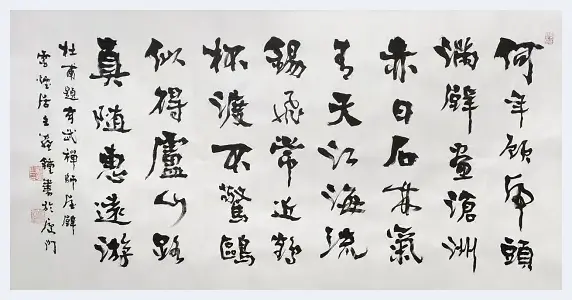 何年顾虎頭
滿壁畫滄洲
赤日石林氣
青天江海流
錫飛常近鶴
杯渡不驚鷗
似得盧山路
真隨惠遠游
杜甫題玄武禅師屋壁
雪居士鐘書於厦门